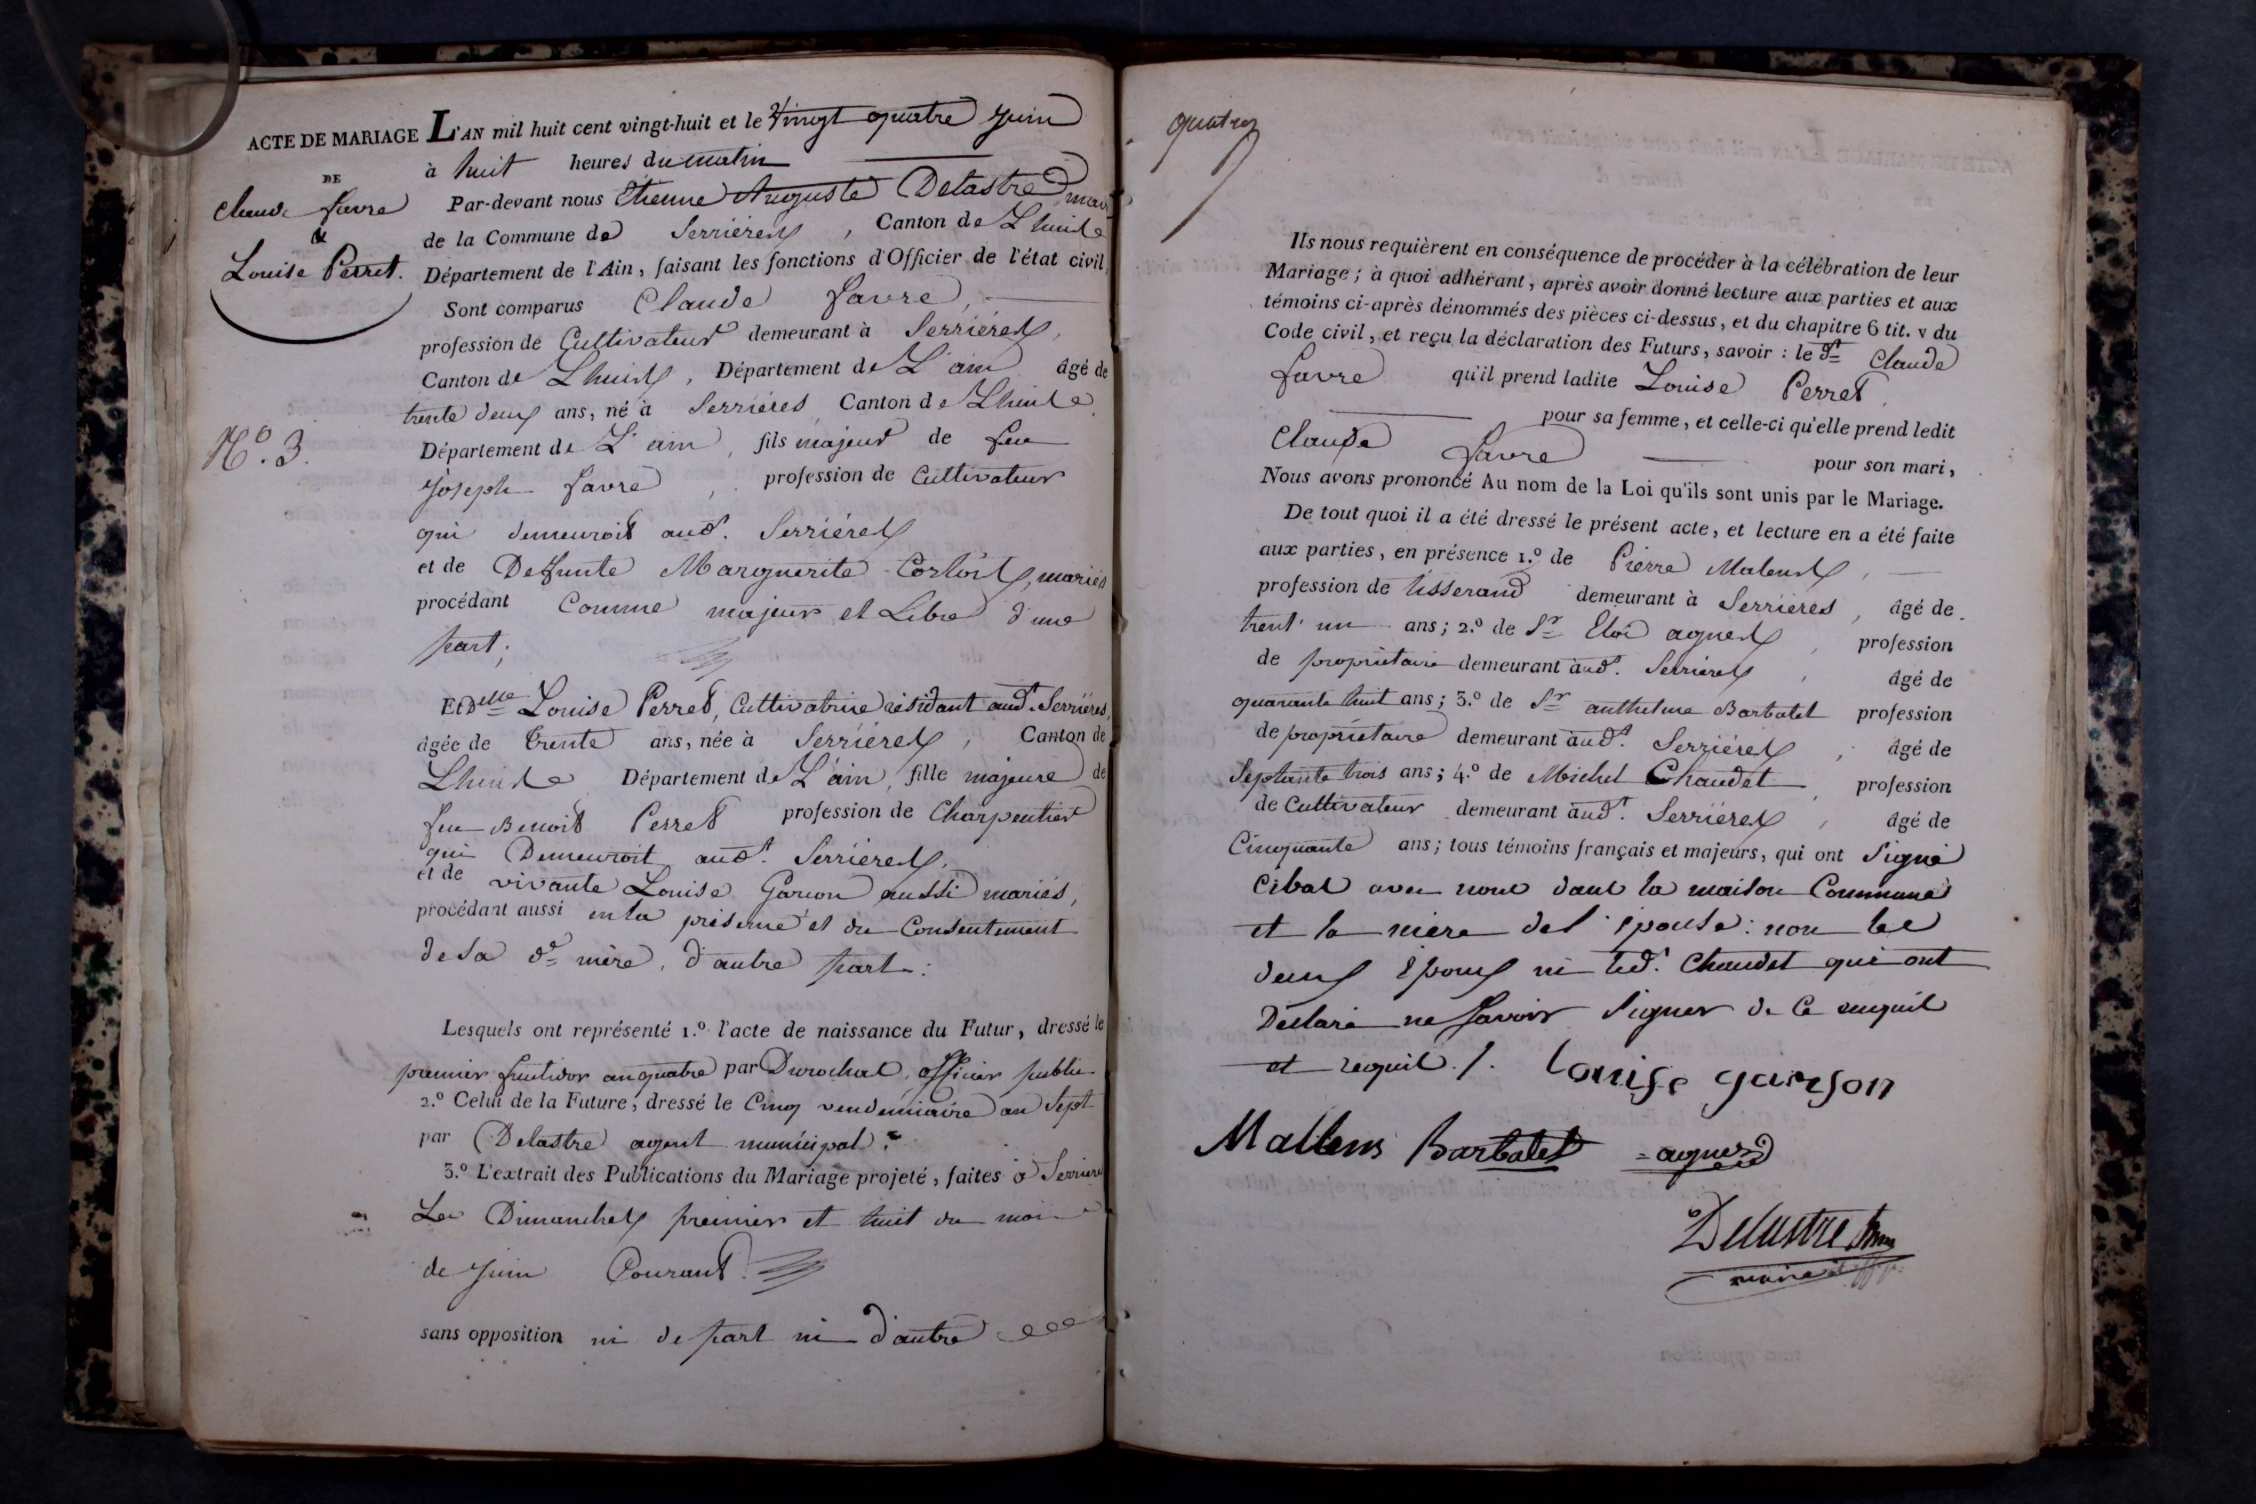 ACTE DE MARIAGE
DE
Claude favre
&
Louise Perret.
N.º 3.
L'AN mil huit cent vingt-huit et le Vingt quatre juin
à huit heures du matin
Par-devant nous Etienne Auguste Delastre maire
de la Commune de Serriéres, Canton de Lhuis
Département de l'Ain, faisant les fonctions d'Officier de l'état civil,
Sont comparus Claude favre,
profession de Cultivateur demeurant à Serriéres,
Canton de Lhuis, Département de L'ain âgé de
trente deux ans, né à Serriéres Canton de Lhuis
Département de L'ain, fils majeur de feu
Joseph favre, profession de Cultivateur
qui demeuroit aud.t Serriéres
et de Defunte Marguerite mariés
procédant Comme majeur et Libre d'une
part;
Et Delle Louise Perret, Cultivatrice résidant aud.t Serriéres,
âgée de trente ans, née à Serriéres, Canton de
Lhuis Département de L'ain, fille majeure de
feu Benoit Perret profession de Charpentier
qui Demeuroit aud.t Serriéres,
et de vivante Louise Garson aussi mariés,
procédant aussi en la présence et du Consentement
de sa d.e mère, d'autre part.:
Lesquels ont représenté 1.º l'acte de naissance du Futur, dressé le
premier fructidor an quatre par Durochat, officier public
2.º Celui de la Future, dressé le Cinq vendémiaire an Sept
par Delastre agent municipal.
3.º L'extrait des Publications du Mariage projeté, faites à Serrieres
Les Dimanches premier et huit du mois
de juin Courant.
sans opposition ni de part ni d'autre
quatre
Ils nous requièrent en conséquence de procéder à la célébration de leur
Mariage; à quoi adhérant, après avoir donné lecture aux parties et aux
témoins ci-après dénommés des pièces ci-dessus, et du chapitre 6 tit. v du
Code civil, et reçu la déclaration des Futurs, savoir : le d.t Claude
favre qu'il prend ladite Louise Perret,
pour sa femme, et celle-ci qu'elle prend ledit
Claude favre pour son mari,
Nous avons prononcé Au nom de la Loi qu'ils sont unis par le Mariage.
De tout quoi il a été dressé le présent acte, et lecture en a été faite
aux parties, en présence 1.º de Pierre Malens,
profession de tisserand demeurant à Serriéres, âgé de
trent'un ans; 2.º de Sr Eloi agnes, profession
de propriétaire demeurant aud.t Serriéres, âgé de
quarante huit ans; 3.º de Sr anthelme Barbatet profession
de propriétaire demeurant aud.t Serriéres, âgé de
Septante trois ans; 4.º de Michel Chaudet, profession
de Cultivateur demeurant aud.t Serriéres, âgé de
Cinquante ans; tous témoins français et majeurs, qui ont signé
cibas avec nous dans la maison Commune
et la mère de l'épouse: non les
deux époux ni led.t Chaudet qui ont
Déclaré ne savoir signer de ce enquis
et requis./. Louise garson
Mallens Barbatet agnes
Delastre
maire